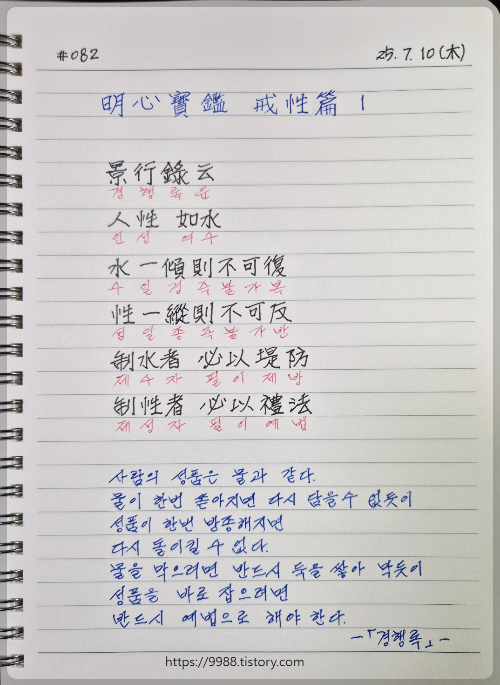 #082 25. 7. 10(木)
明心寶鑑 戒性篇 1
景行錄云
경행록운
人性 如水
인성 여수
水一傾則不可復
수일경즉불가복
性一縱則不可反
성일종즉불가반
制水者 必以堤防
제수자 필이제방
制性者 必以禮法
제성자 필이예법
사람의 성품은 물과 같다.
물이 한번 쏟아지면 다시 담을수 없듯이
성품이 한번 방종해지면
다시 돌이킬 수 없다.
물을 막으려면 반드시 둑을 쌓아 막듯이
성품을 바로 잡으려면
반드시 예법으로 해야 한다.
-「경행록」-
https://9988.tistory.com